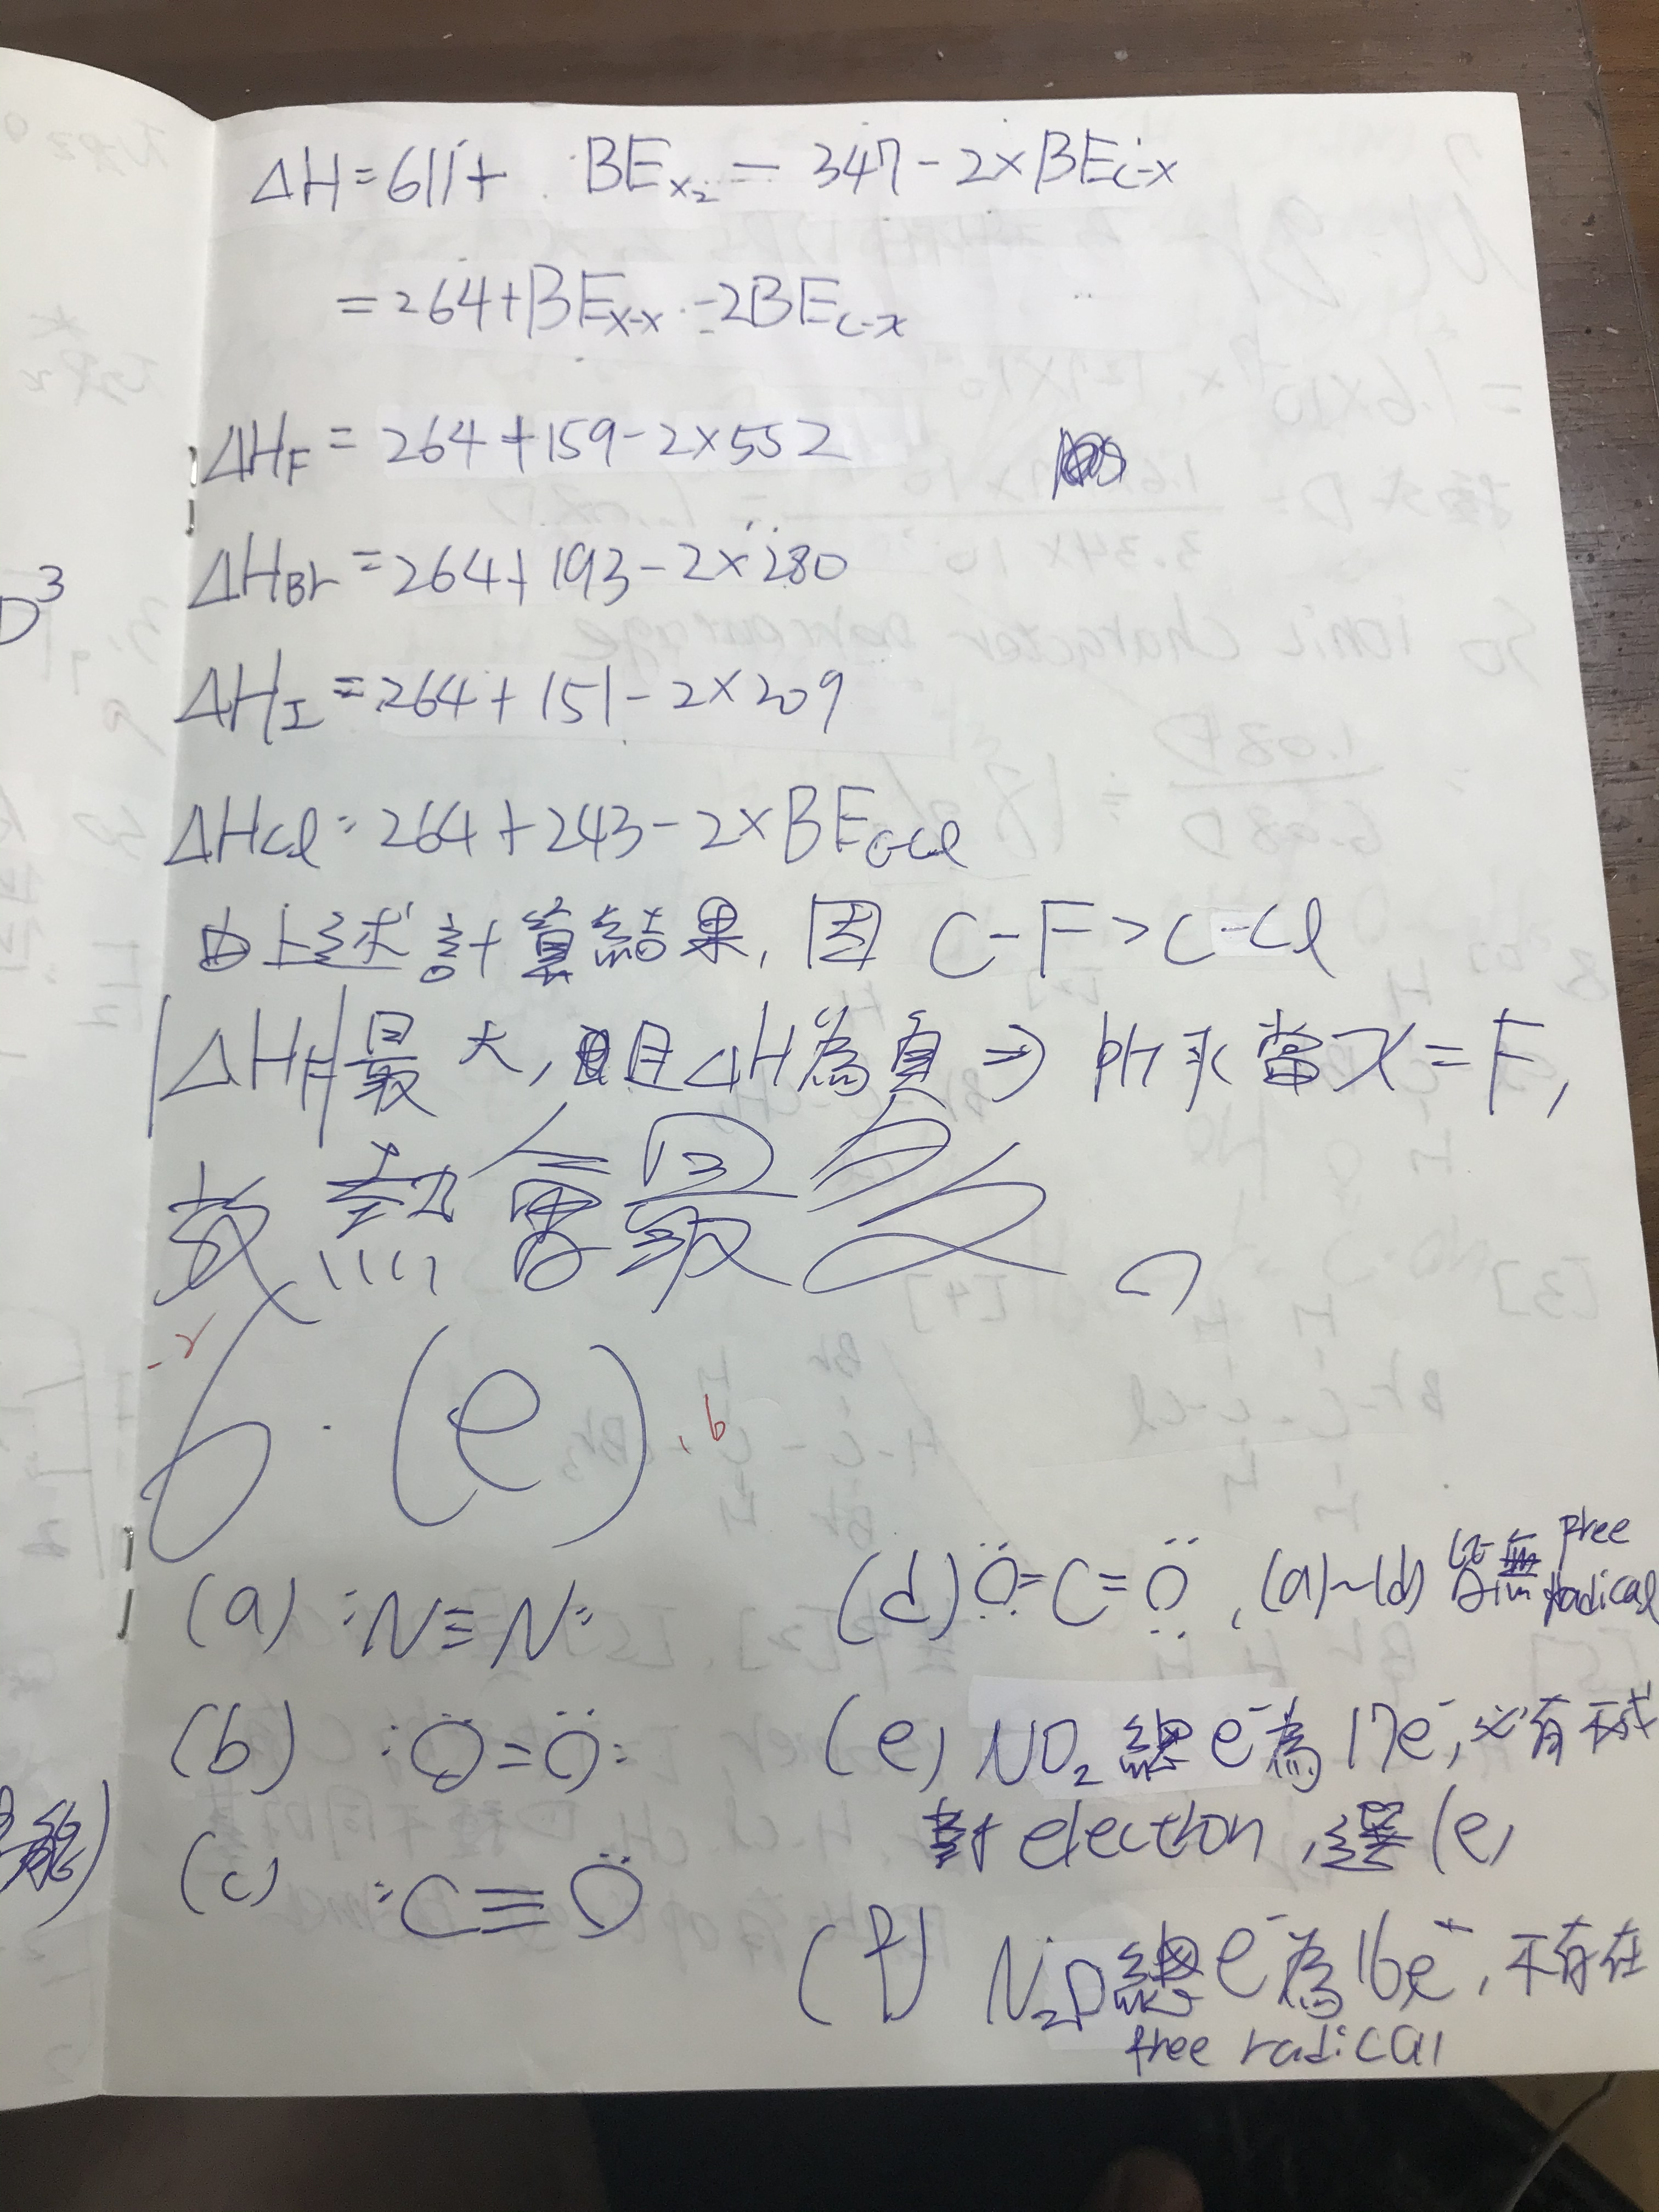 ΔH=611+ BE_X₂ - 347-2×BE_C-X
=264+BE_X-X -2BE_C-X
ΔH_F = 264+159-2×552
ΔH_Br = 264+193-2×280
ΔH_I = 264+151-2×209
ΔH_Cl = 264+243-2×BE_C-Cl
由上述計算結果, 因 C-F>C-Cl
|ΔH_F|最大, 且ΔH為負⇒所求當X=F,
放熱會最多。
-2
6.(e) .b
(a) :N≡N:
(b) :Ö=Ö:
(c) :C≡Ö
(d) Ö=C=Ö, (a)~(d) 皆無 free radical
(e) NO₂總e⁻為17e⁻, 必有不成
對 electron, 選(e)
(f) N₂O總e⁻為16e⁻, 不存在
free radical
D³
能)